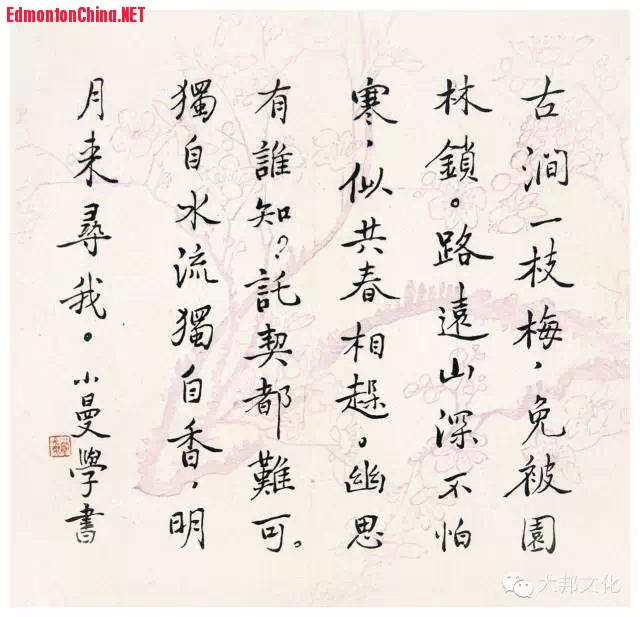 EdmontonChina.NET
古澗一枝梅，免被園
林鎖。路遠山深不怕
寒，似共春相趓。幽思
有誰知？託契都難可。
獨自水流獨自香，明
月来尋我。小曼學書
大邦文化